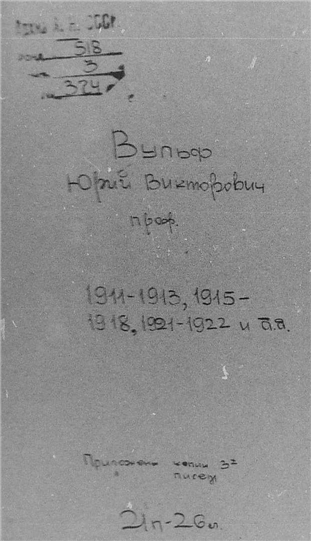 Архив А. Н. СССР.
фонд 518
оп. 3
№ 374
Вульф
Юрий Викторович
проф.
1911-1913, 1915-
1918, 1921-1922 и б.д.
Приложены копии 3х
писем
21п-26л.